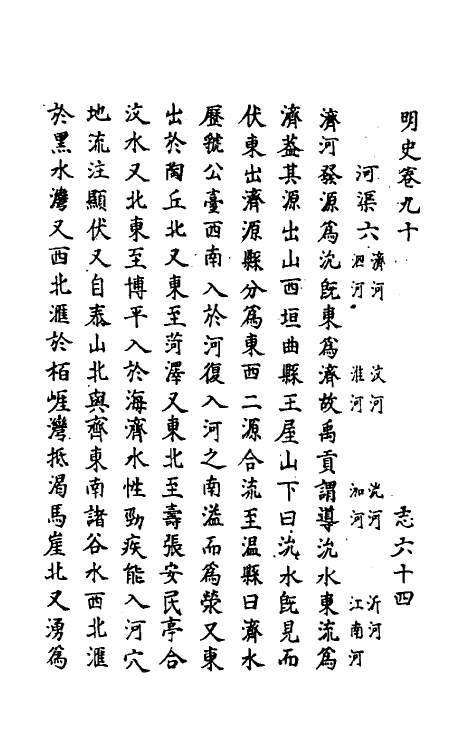 明史卷九十 志六十四
河渠六 濟河 汶河 沇河 沂河 泗河 淮河 泇河 江南河
濟河發源為沇既東為濟故禹貢謂導沇水東流為
濟蓋其源出山西垣曲縣王屋山下曰沇水既見而
伏東出濟源縣分為東西二源合流至温縣曰濟水
歷虢公臺西南入於河復入河之南溢而為滎又東
出於陶丘北又東至菏澤又東北至壽張安民亭合
汶水又北東至博平入於海濟水性勁疾能入河穴
地流注顯伏又自泰山北與齊東南諸谷水西北滙
於黑水灣又西北滙於栢崖灣抵渴馬崖北又湧為